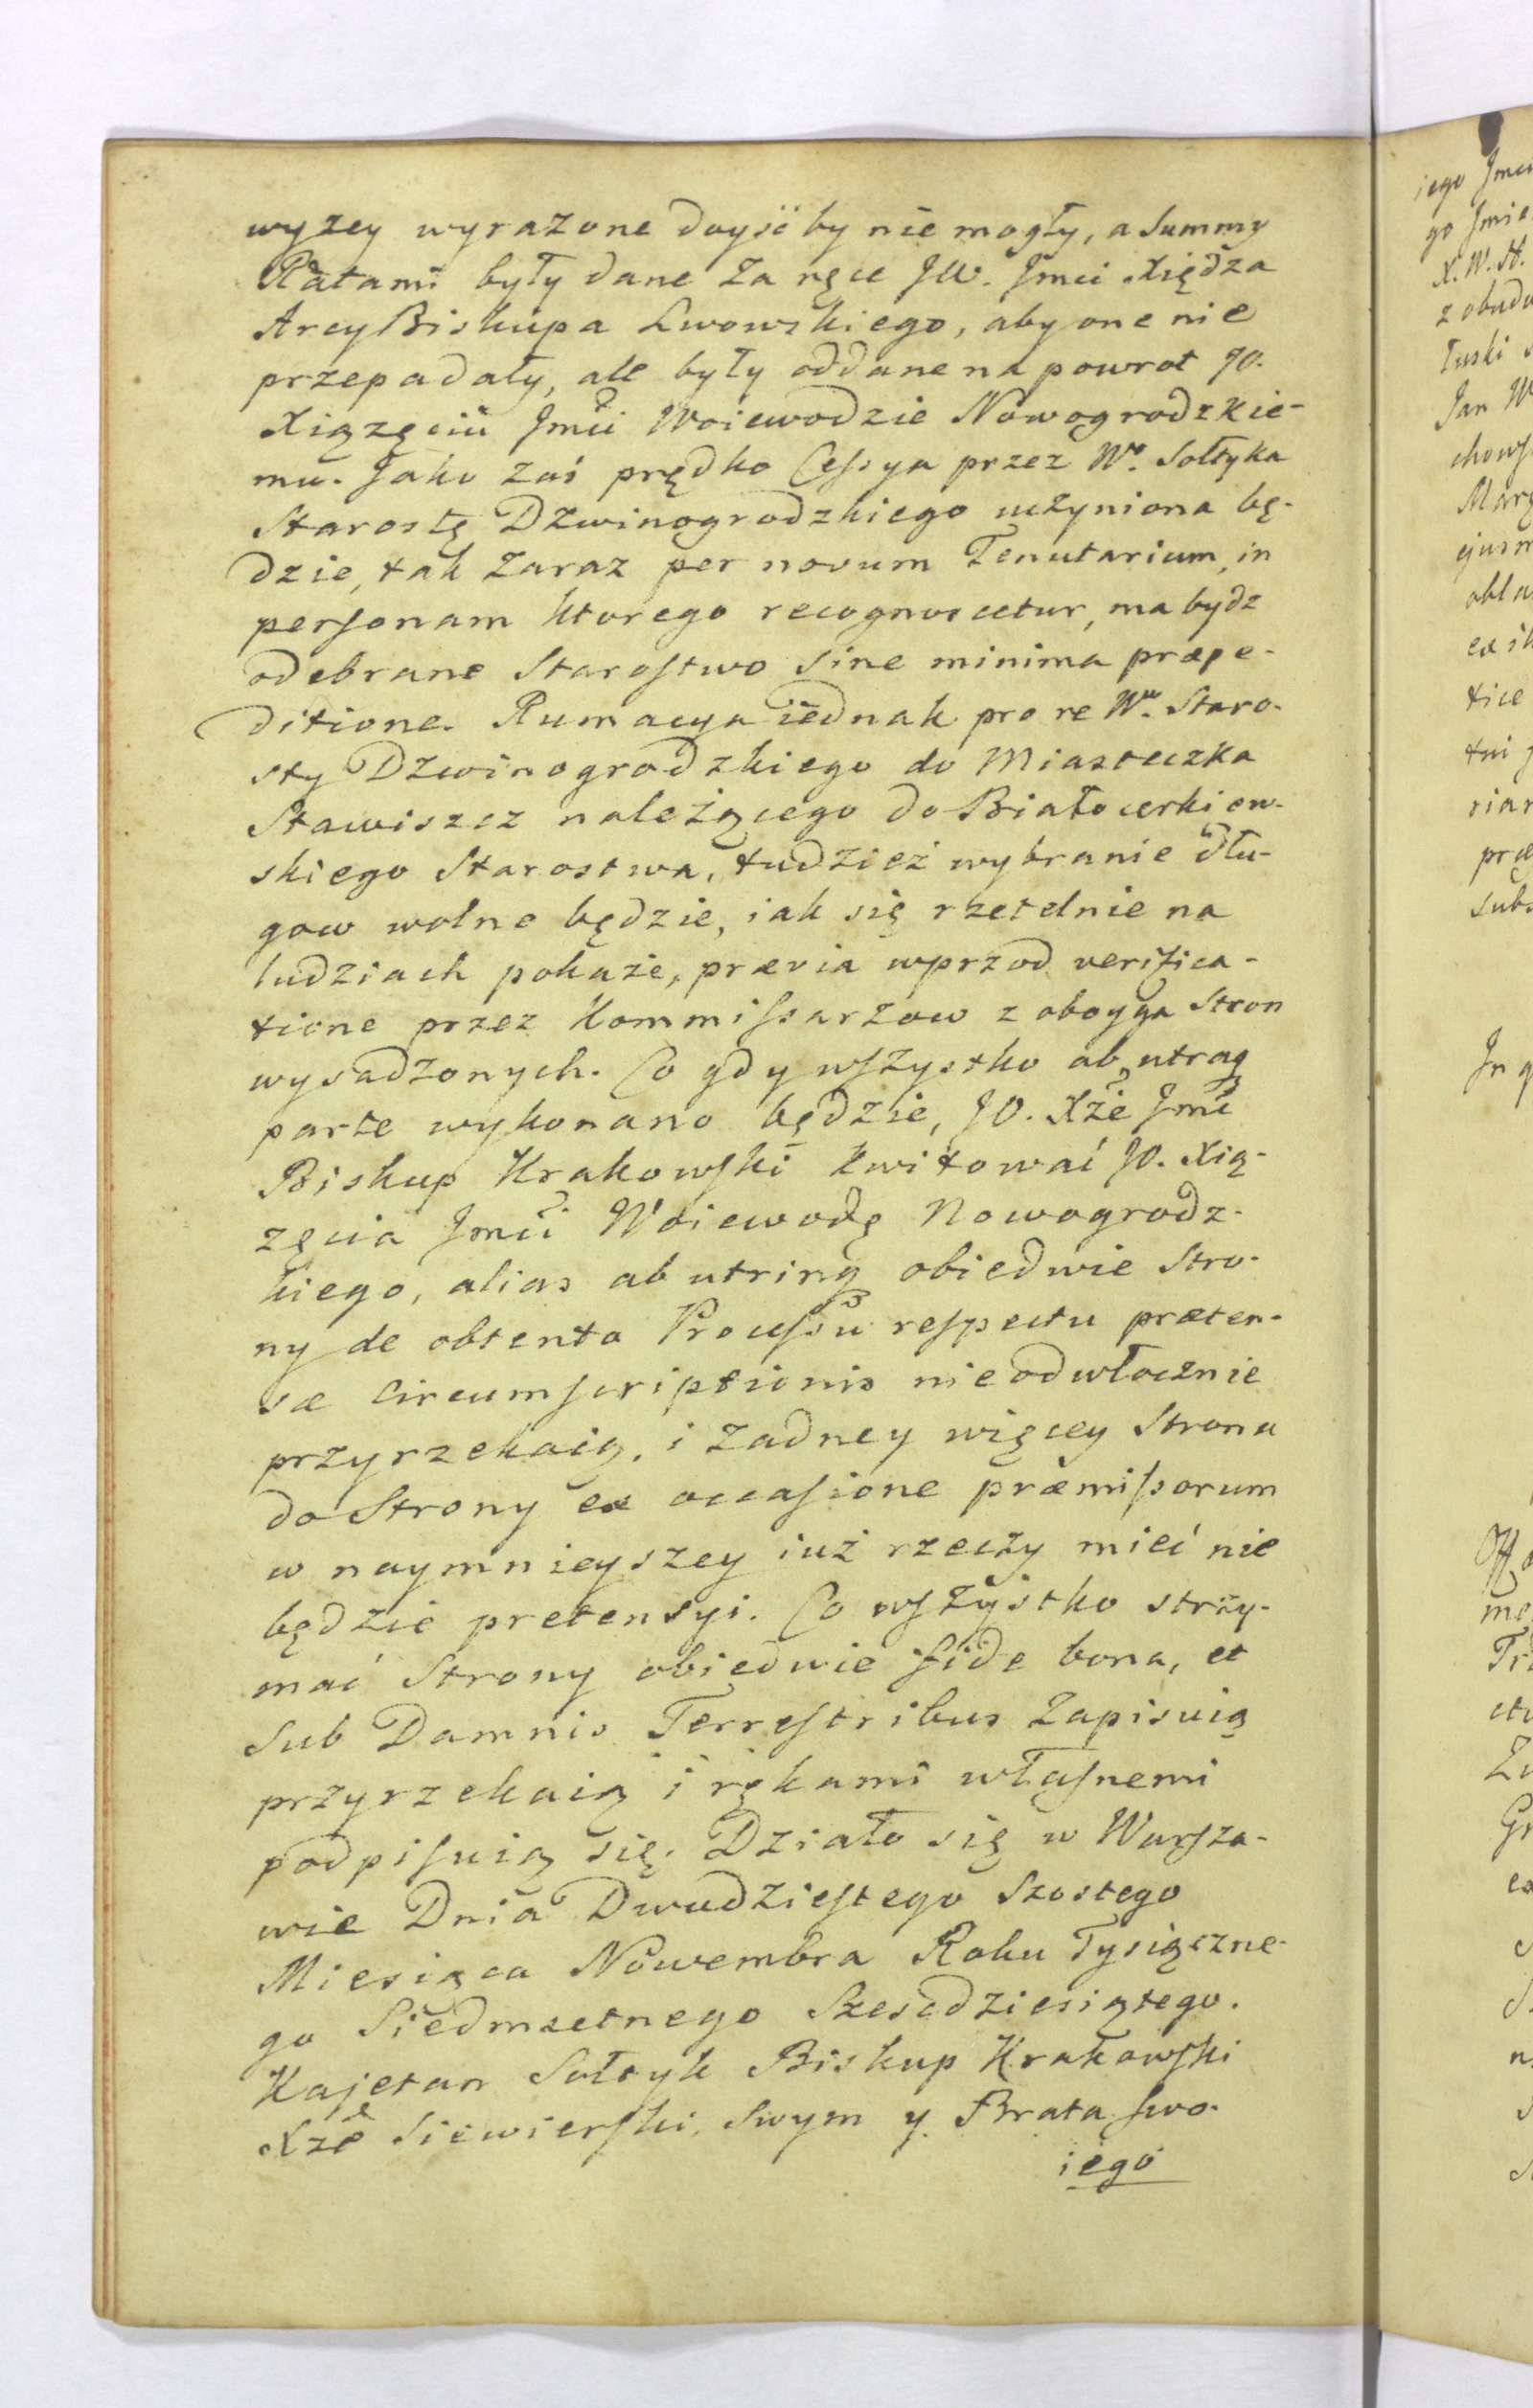 wyzey wyrażone doyść by nie mogły, a Summy
Ratami były dane za ręce JW. Jmci Xiędza
ArcyBiskupa Lwowskiego, aby one nie
przepadały, ale były oddane na powrot JO.
Xiążęciu Jmci Woiewodzie Nowogrodzkie-
mu. Jako zaś prędko Cessya przez Wo. Sołtyka
Starostę Dzwinogrodzkiego uczyniona bę-
dzie, tak zaraz per novum Tenutarium, in
personam ktorego recognoscetur, ma bydz
odebrane Starostwo sine minima præpe-
ditione. Rumacya iednak pro re Wo. Staro-
sty Dzwinogrodzkiego do Miasteczka
Stawiszcz należącego do Białocerkiew-
skiego Starostwa, tudzież wybranie dłu-
gow wolne będzie, iak się rzetelnie na
ludziach pokaże, prævia wprzod verifica-
tione przez Kommissarzow z oboyga Stron
wysadzonych. Co gdy wszystko ab utraq
parte wykonano będzie, JO. Xże Jmć
Biskup Krakowski kwitować JO. Xią-
żęcia Jmci Woiewodę Nowogrodz-
kiego, alias ab utrinq obiedwie Stro-
ny de obtento Processu respectu præten-
sæ circumscriptionis nieodwłocznie
przyrzekaią, i żadney więcey Strona
do Strony ex occasione præmissorum
w naymnieyszey iuż rzeczy mieć nie
będzie pretensyi. Co wszystko strzy-
mać Strony obiedwie fide bona, et
sub Damnis Terrestribus zapisuią
przyrzekaią i rękami własnemi
podpisuią się. Działo się w Warsza-
wie Dnia Dwudziestego Szostego
Miesiąca Nowembra Roku Tysiączne-
go Siedmsetnego Szescdziesiątego.
Kajetan Sołtyk Biskup Krakowski
Xże Siewierski, Swym y Brata swo-
iego